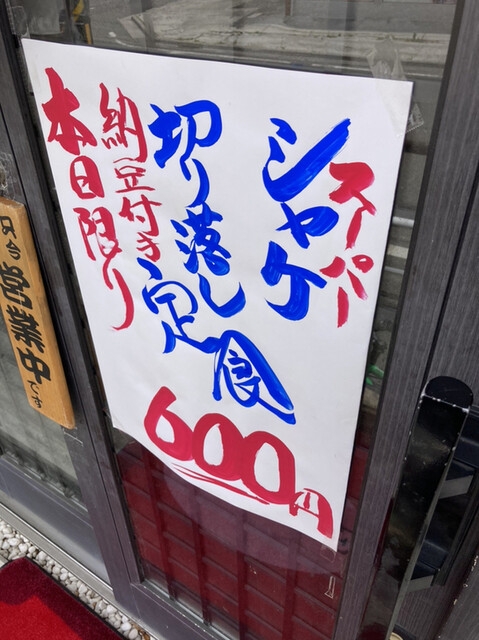 スーパー
シャケ
切り落し定食
納豆付き
本日限り
600円
只今営業中です